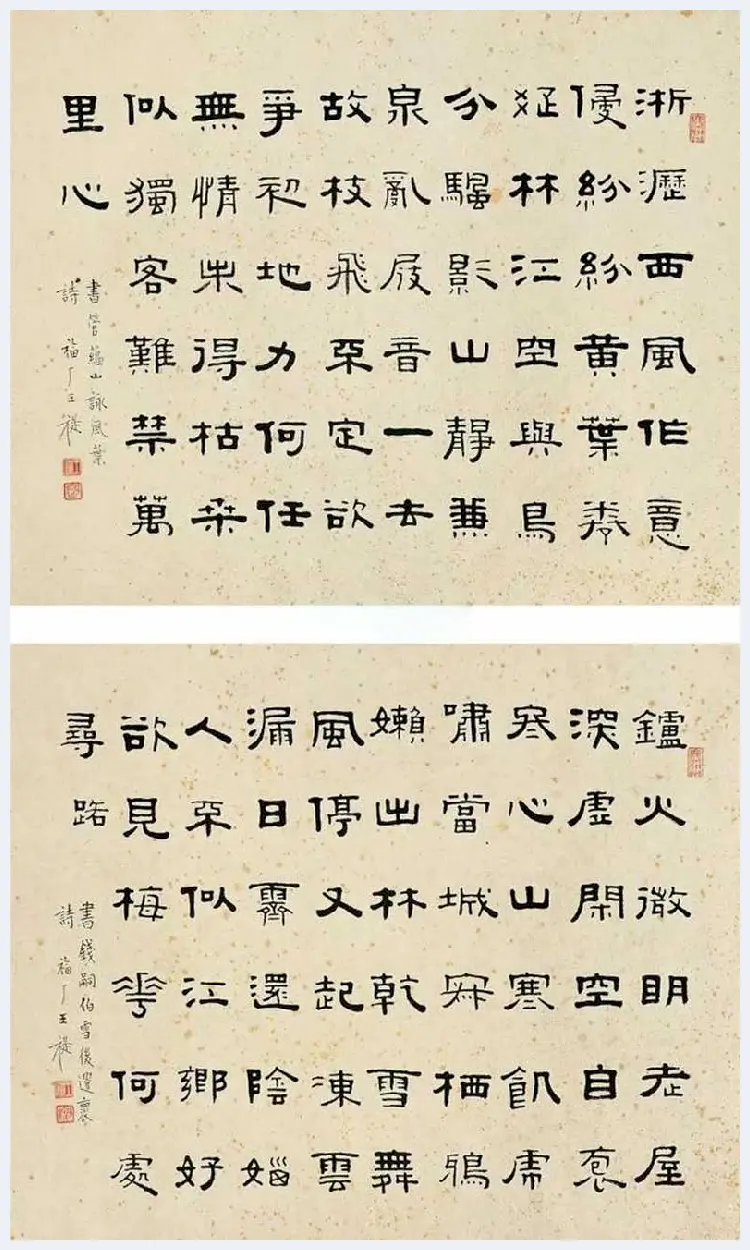 淅瀝西風作意
侵紛紛黃葉
疏林江空與鳥
分影山靜兼
泉亂屐音一去
故枝飛不定欲
爭初地力何任
無情未得枯桑
似獨客難禁萬
里心
書管韞山詠風葉
詩 福厂王禔
鑪火微明老屋
深虛閑空自袌
寒心山寒飢虎
嘯當城栖鴉
嬾出林乾雪舞
風停又起凍雲
漏日霽還陰
人不似江鄉好
欲見梅花何處
尋
書錢嗣伯雪後遣褱
詩 福厂王禔